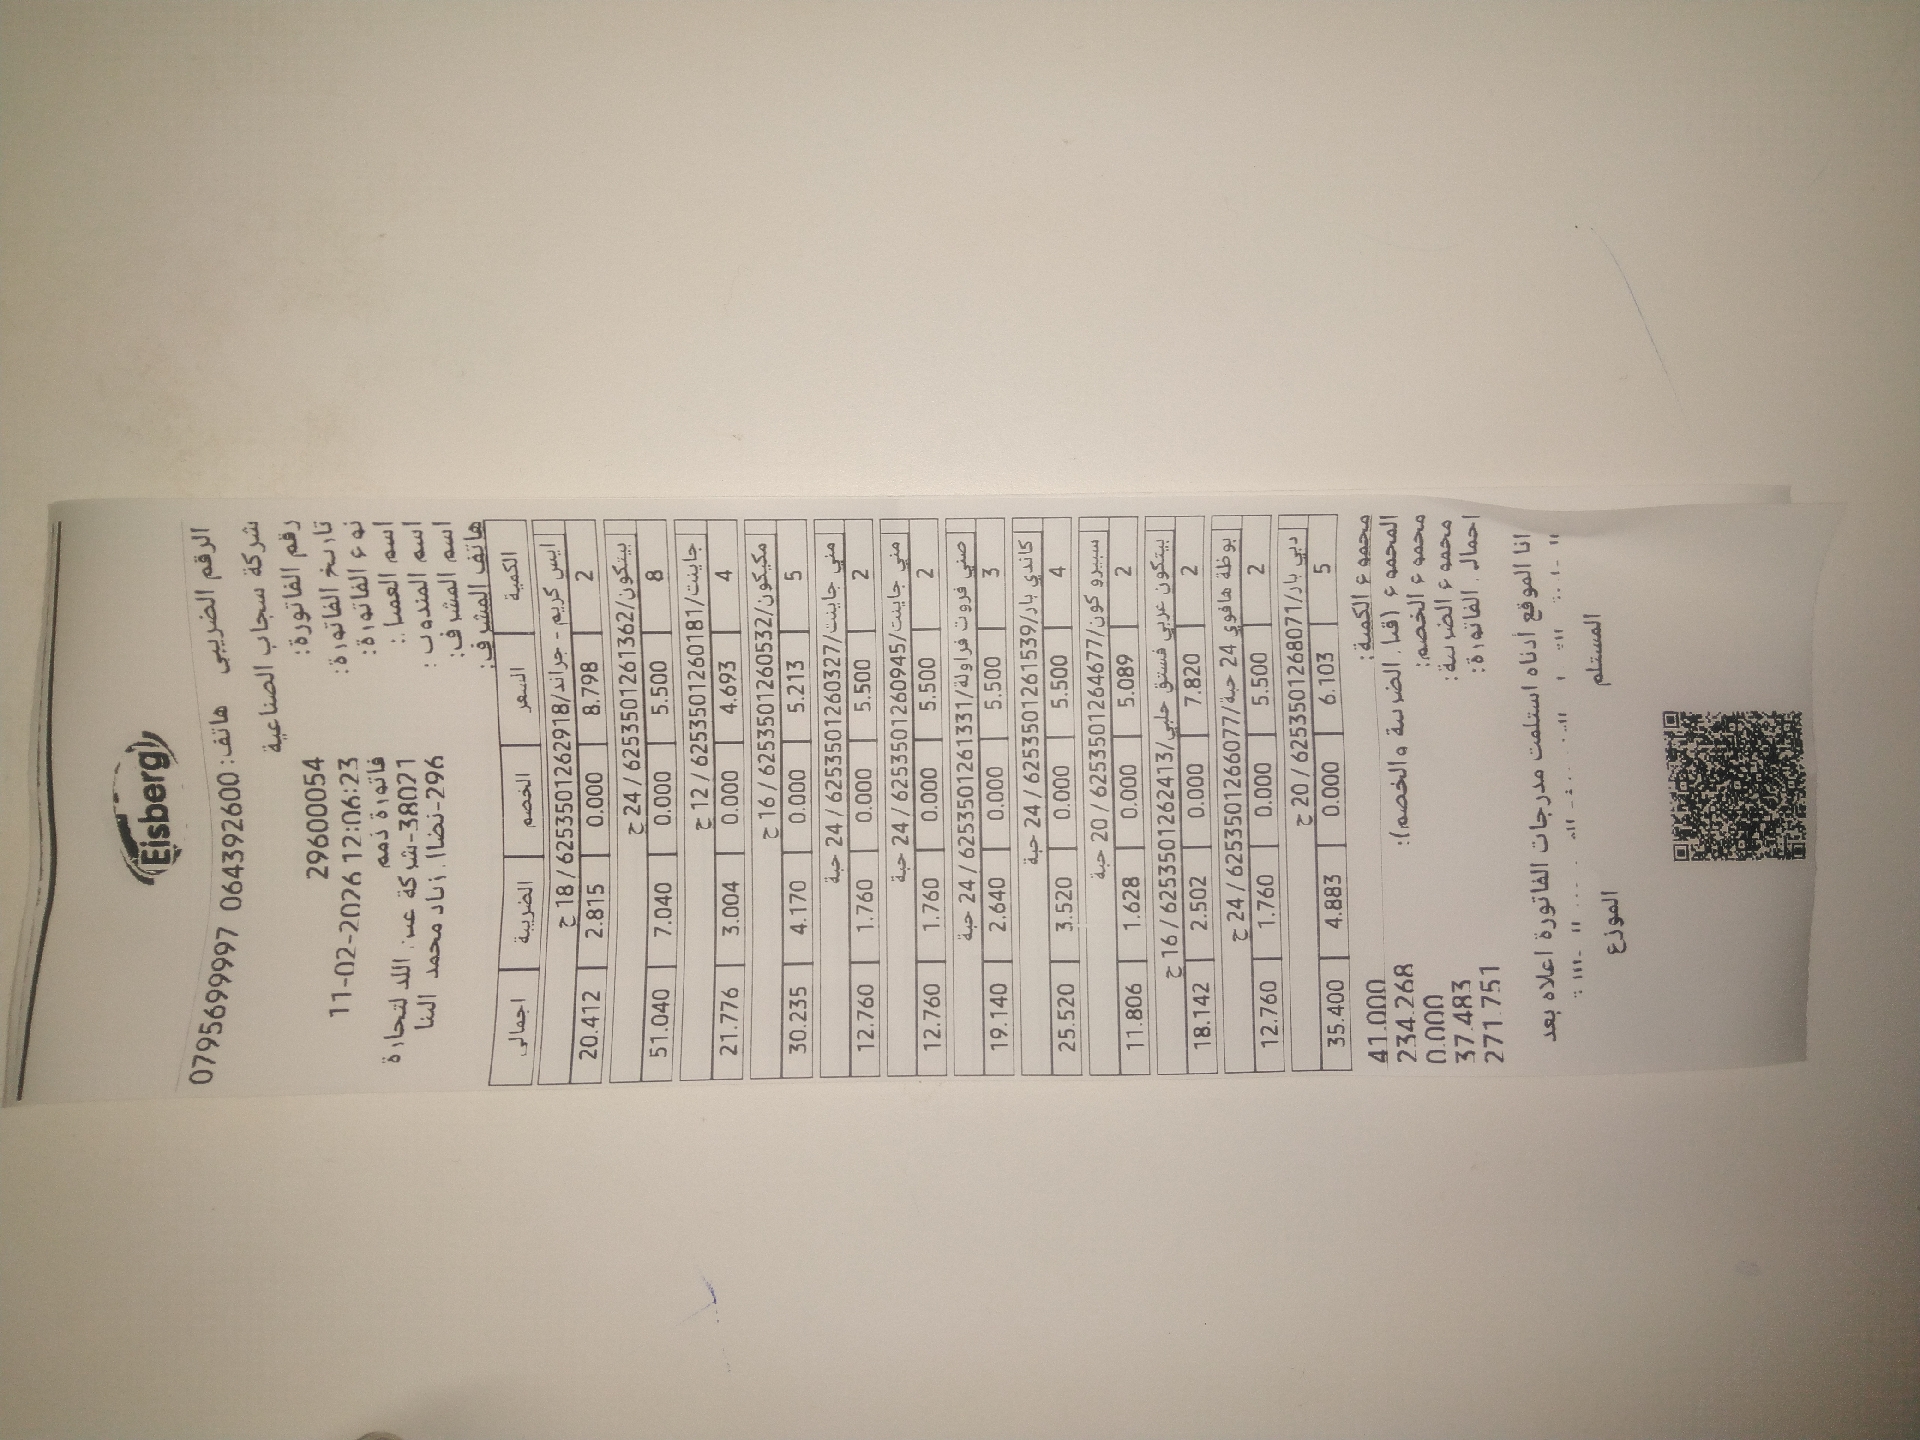 Eisberg
الرقم الضريبي هاتف: 0795699997 064392600
شركة سجاب الصناعية
رقم الفاتورة: 29600054
تاريخ الفاتورة: 11-02-2026 12:06:23
نوع الفاتورة: فاتورة ذمم
اسم العميل: 38021-شركة عبد الله لتجارة
اسم المندوب: 296-نضال زياد محمد البنا
اسم المشرف:
هاتف المشرف:
الكمية السعر الخصم الضريبة اجمالي
ايس كريم - جراند/6253501262918 / 18 ح
2 8.798 0.000 2.815 20.412
بيتكون/6253501261362 / 24 ح
8 5.500 0.000 7.040 51.040
جاينت/6253501260181 / 12 ح
4 4.693 0.000 3.004 21.776
مكيكون/6253501260532 / 16 ح
5 5.213 0.000 4.170 30.235
مني جاينت/6253501260327 / 24 حبة
2 5.500 0.000 1.760 12.760
مني جاينت/6253501260945 / 24 حبة
2 5.500 0.000 1.760 12.760
صني فروت فراولة/6253501261331 / 24 حبة
3 5.500 0.000 2.640 19.140
كاندي بار/6253501261539 / 24 حبة
4 5.500 0.000 3.520 25.520
سبيرو كون/6253501264677 / 20 حبة
2 5.089 0.000 1.628 11.806
بيتكون عربي فستق حلبي/6253501262413 / 16 ح
2 7.820 0.000 2.502 18.142
بوظة هافوي 24 حبة/6253501266077 / 24 ح
2 5.500 0.000 1.760 12.760
دبي بار/6253501268071 / 20 ح
5 6.103 0.000 4.883 35.400
مجموع الكمية: 41.000
المجموع (قبل الضريبة والخصم): 234.268
مجموع الخصم: 0.000
مجموع الضريبة: 37.483
اجمالي الفاتورة: 271.751
انا الموقع أدناه استلمت مدرجات الفاتورة اعلاه بعد
المستلم الموزع